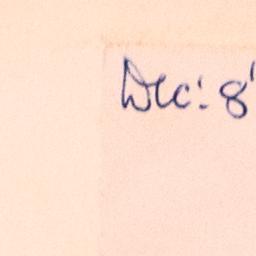 Dec: 8'